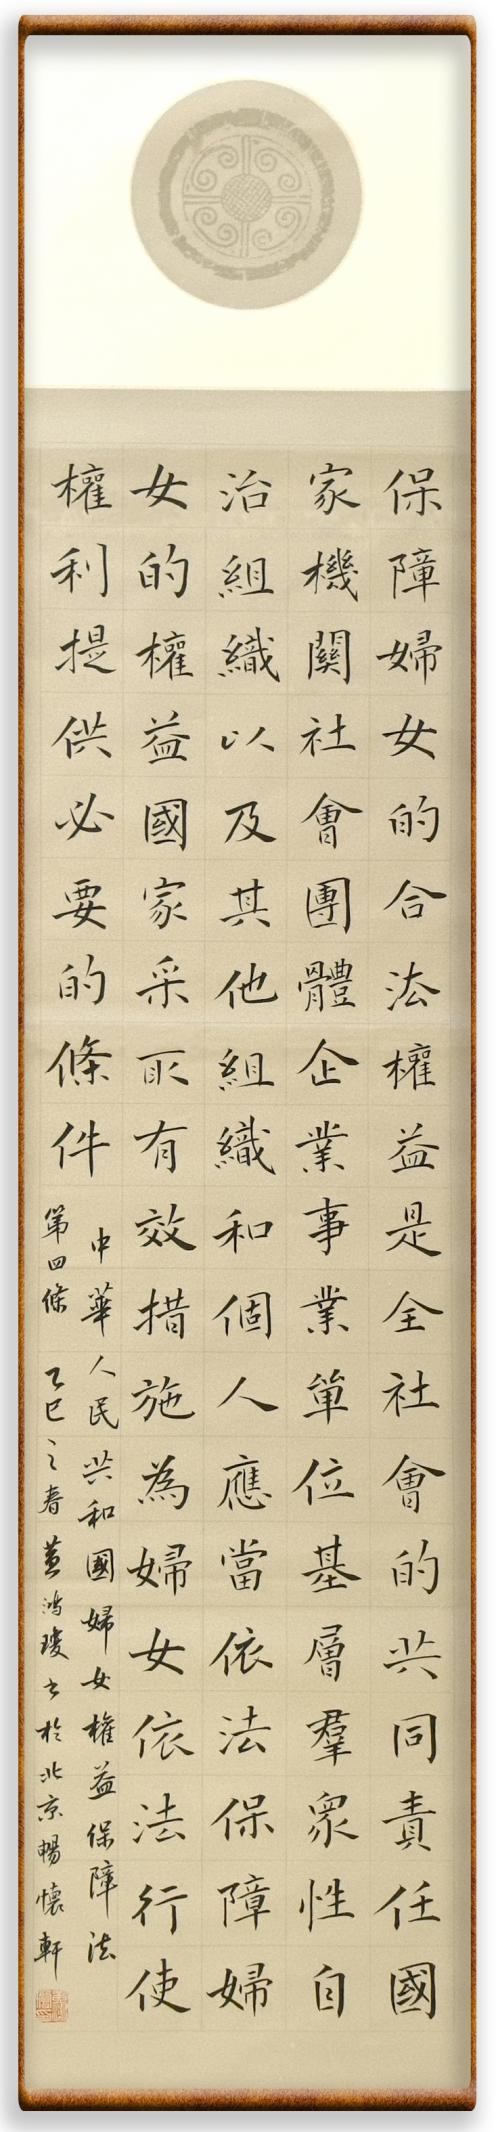 保障婦女的合法權益是全社會的共同責任國
家機關社會團體企業事業單位基層羣眾性自
治組織以及其他組織和個人應當依法保障婦
女的權益國家采取有效措施為婦女依法行使
權利提供必要的條件
中華人民共和國婦女權益保障法
第四條 乙巳之春黃鴻瓊書於北京暢懷軒